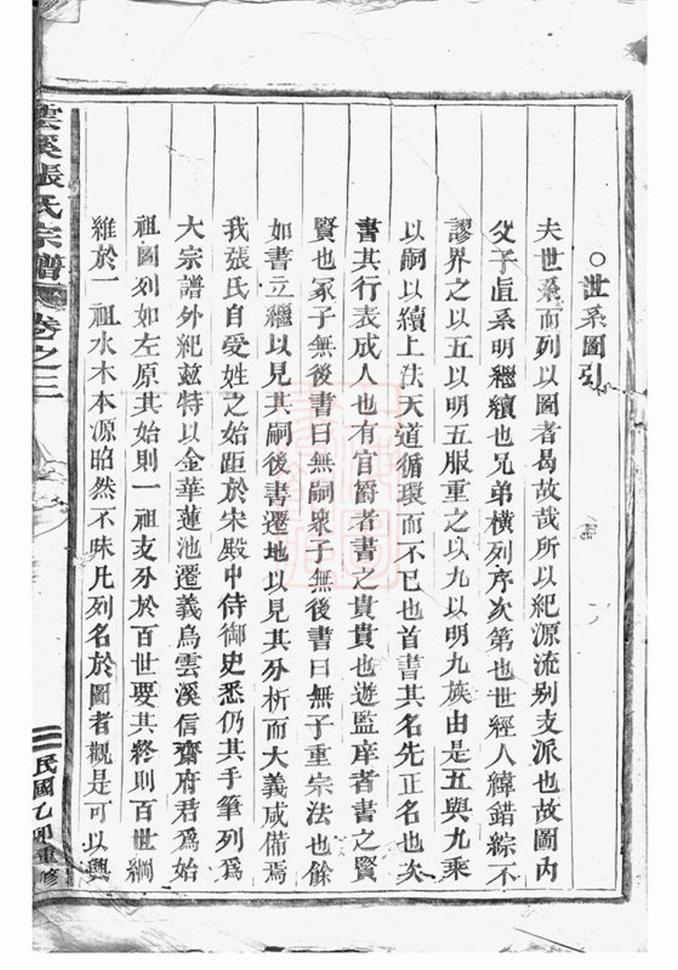 ○世系圖引
夫世系而列以圖者曷故哉所以紀源流別支派也故圖內
父子直系明繼續也兄弟橫列序次第也世經人緯錯綜不
謬界之以五以明五服重之以九以明九族由是五與九乘
以嗣以續上法天道循環而不已也首書其名先正名也次
書其行表成人也有官爵者書之貴貴也遊監庠者書之賢
賢也冢子無後書曰無嗣衆子無後書曰無子重宗法也餘
如書立繼以見其嗣後書遷地以見其分析而大義咸備焉
我張氏自受姓之始距於宋殿中侍御史悉仍其手筆列爲
大宗譜外紀玆特以金華蓮池遷義烏雲溪信齋府君爲始
祖圖列如左原其始則一祖支分於百世要其終則百世綱
維於一祖水木本源昭然不昧凡列名於圖者觀是可以興
雲溪張氏宗譜 卷之三
民國乙卯重修